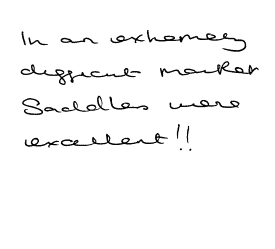 In an extremely
difficult market
Saddles were
excellent!!